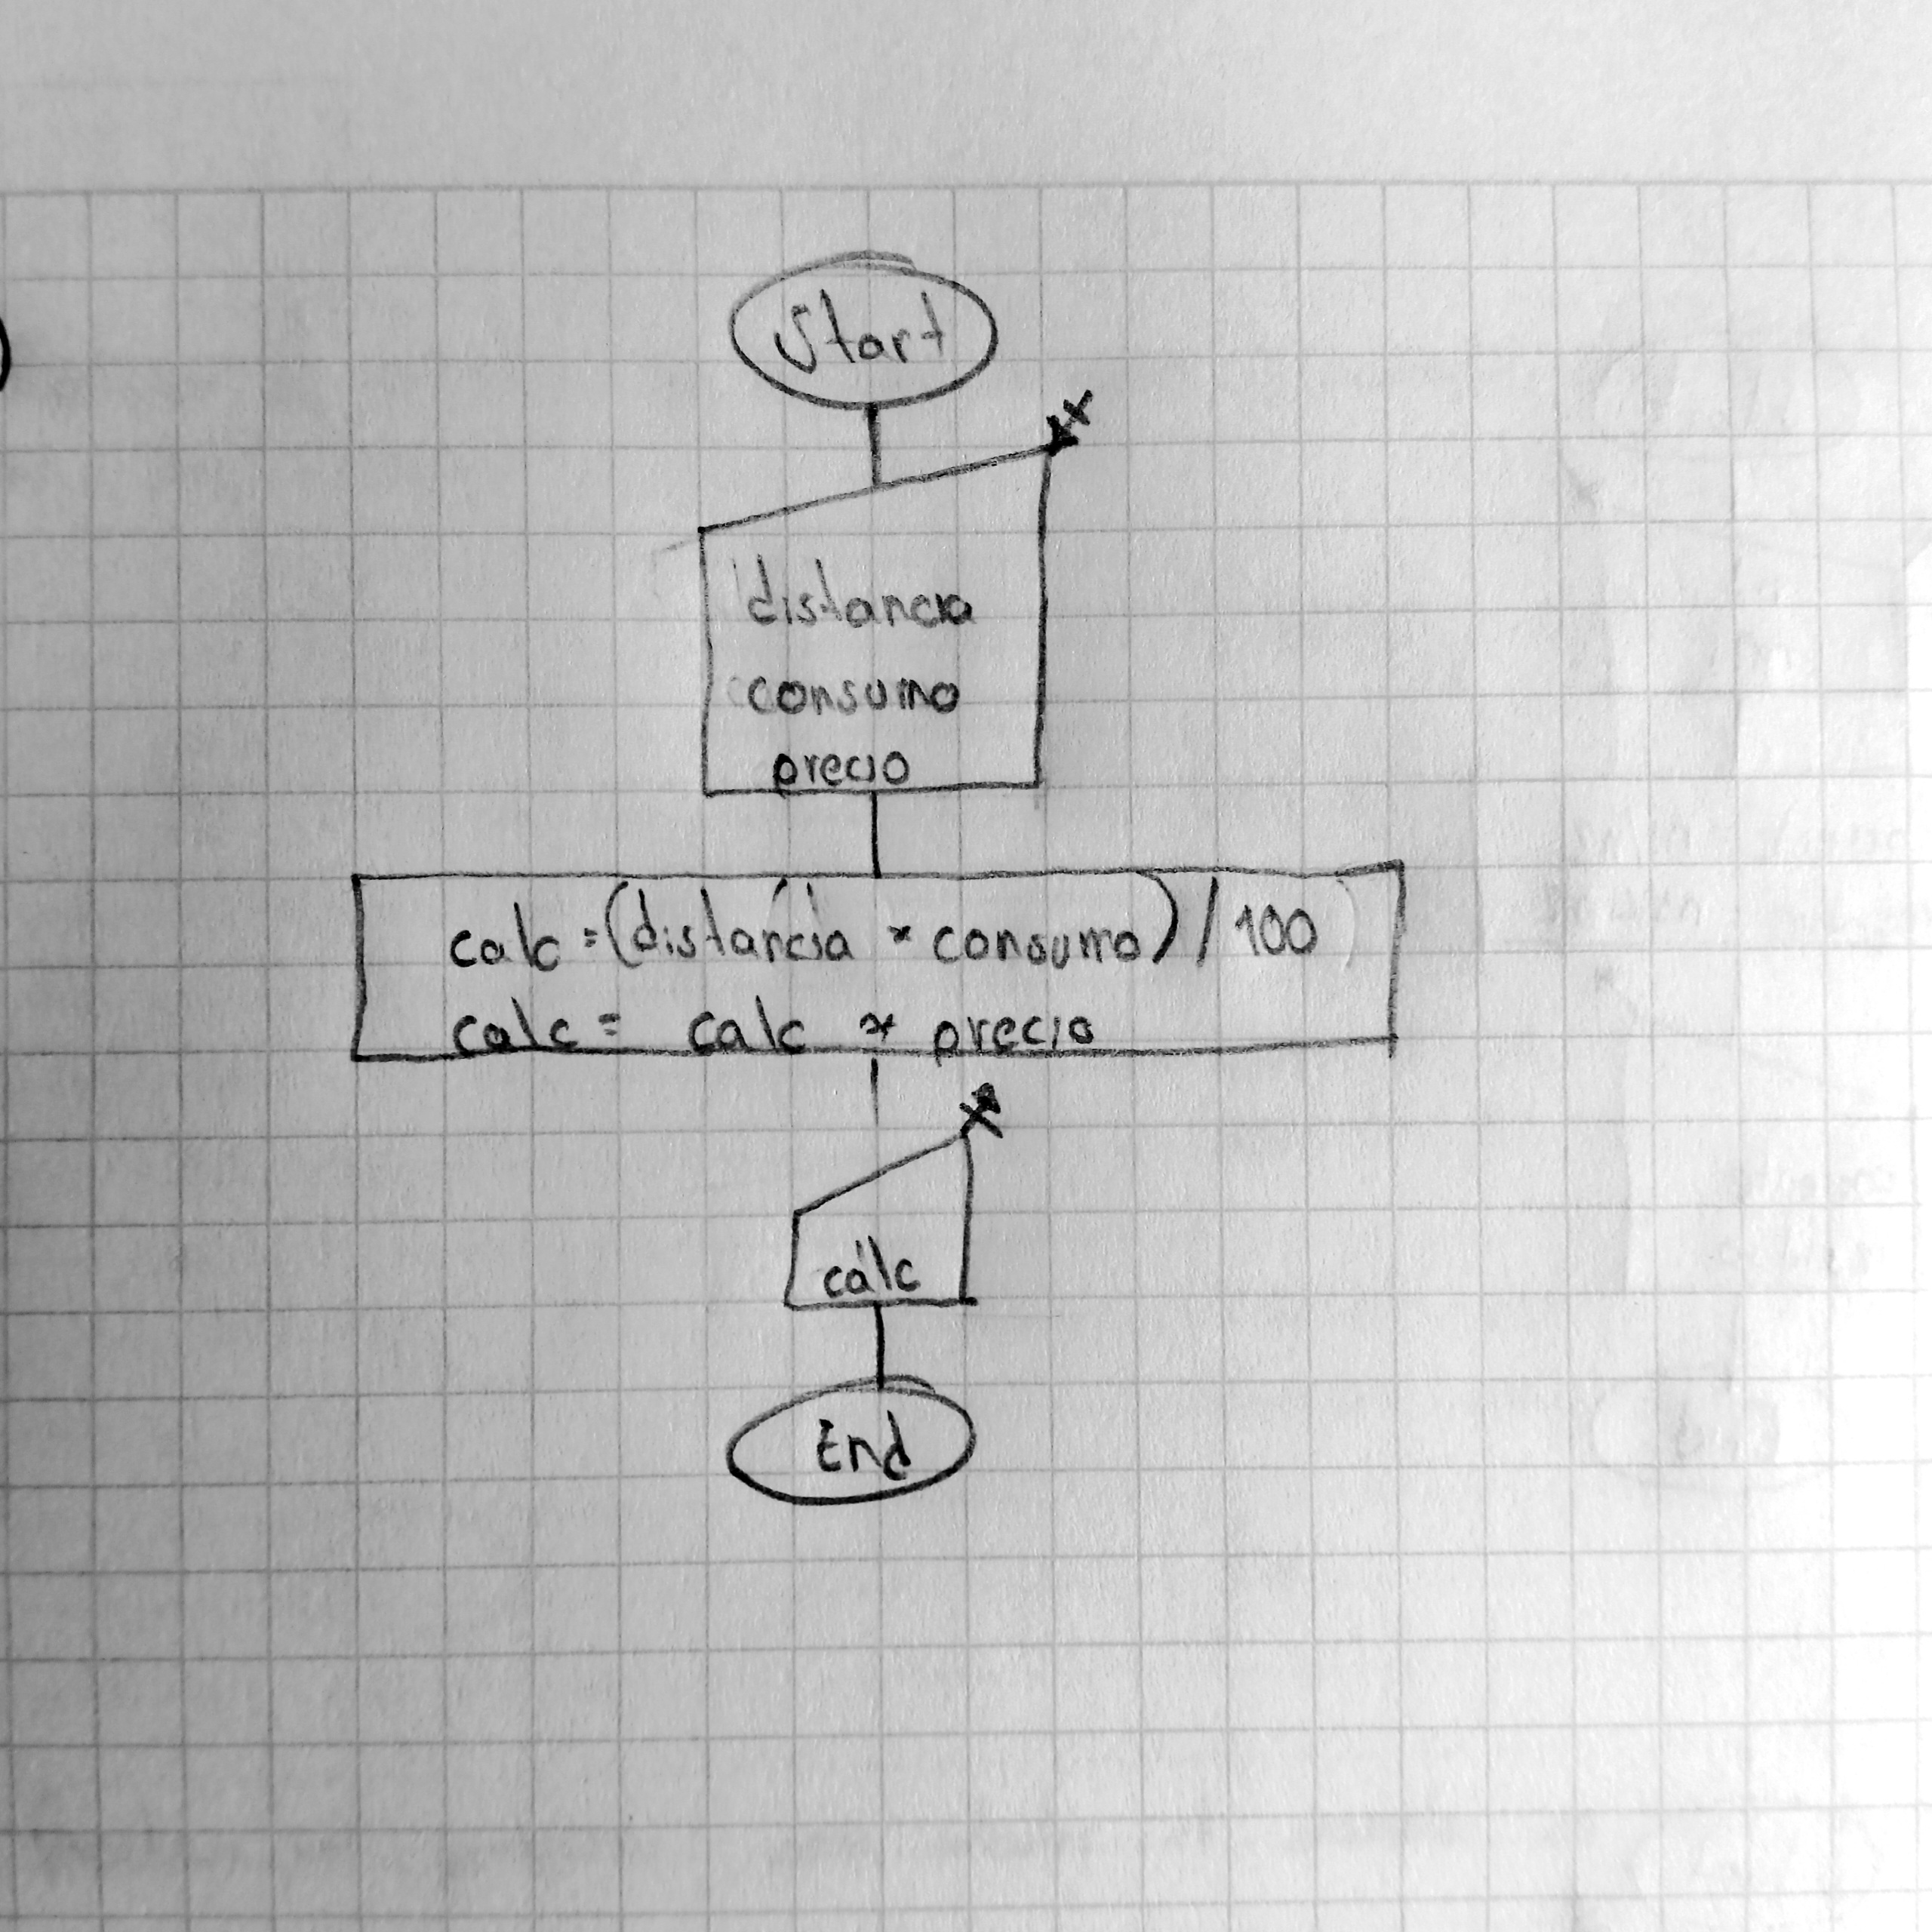 Start
distancia
consumo
precio
calc = (distancia * consumo) / 100
calc = calc * precio
calc
End